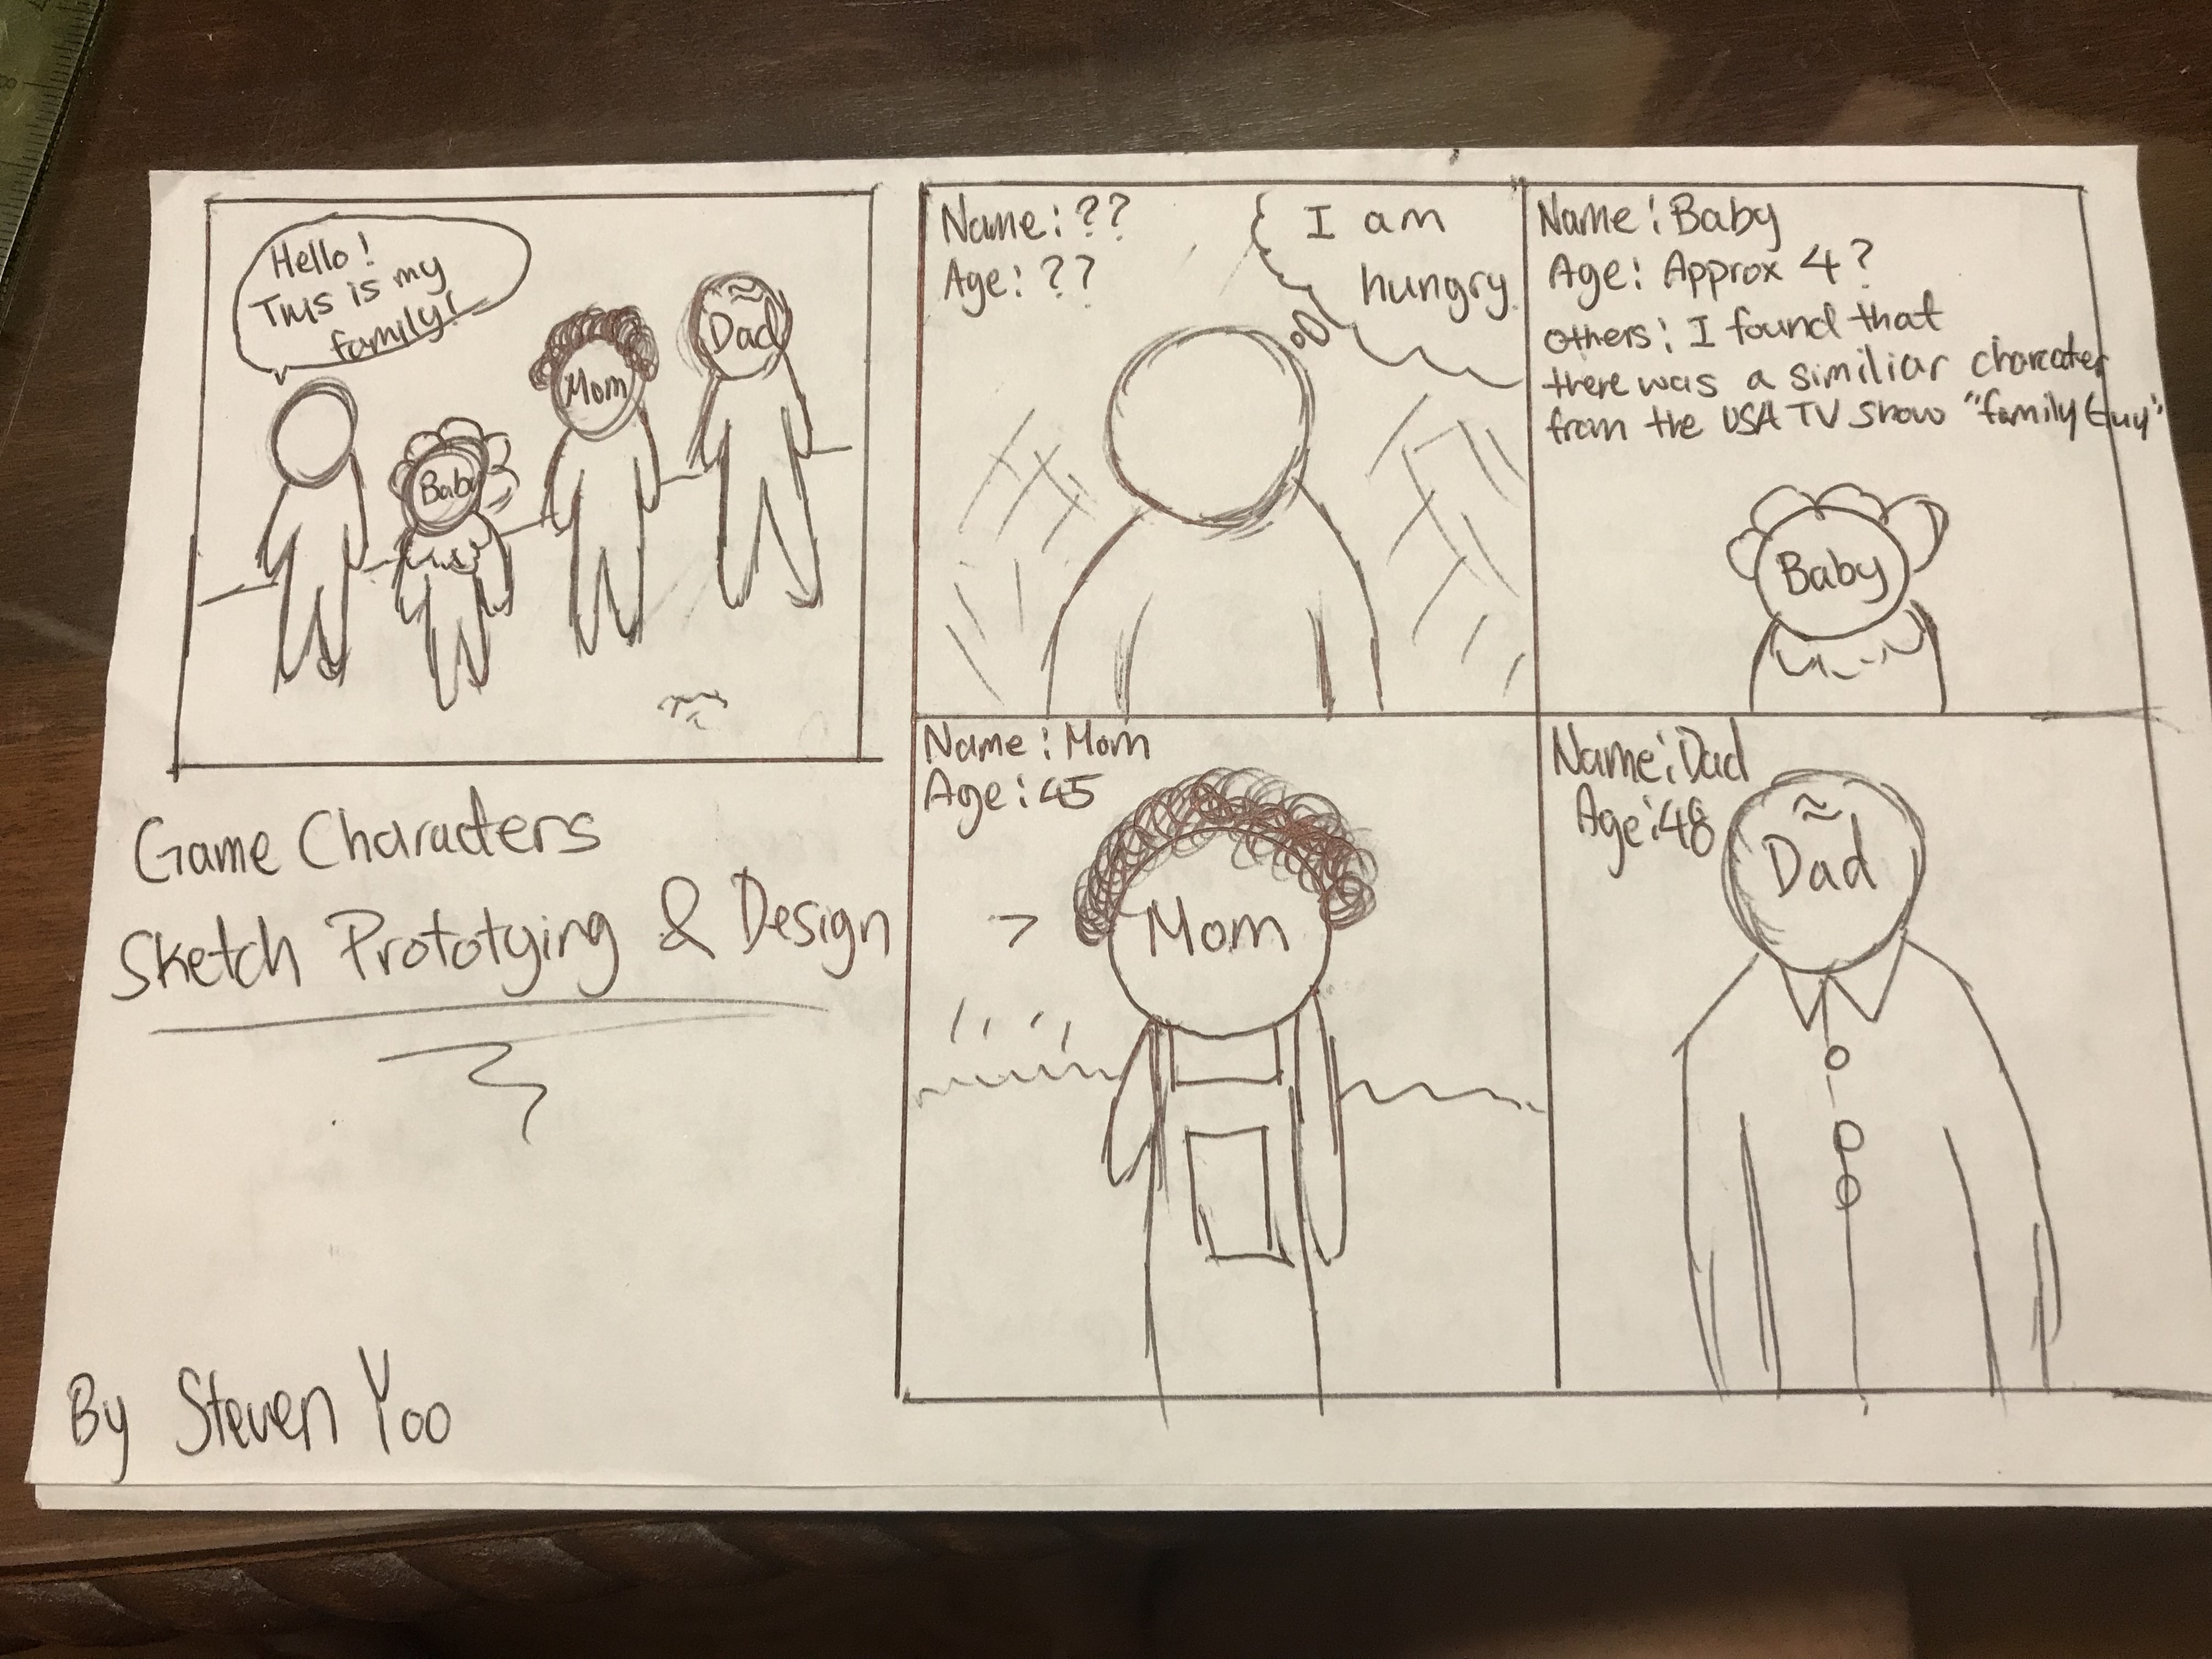 Hello!
This is my
family!
Baby
Mom
Dad
Game Characters
Sketch Prototying & Design
By Steven Yoo
Name: ??
Age: ??
I am
hungry
Name: Baby
Age: Approx 4?
others: I found that
there was a similiar charcater
from the USA TV Show "family Guy"
Baby
Name: Mom
Age: 45
Mom
Name: Dad
Age: 48
Dad